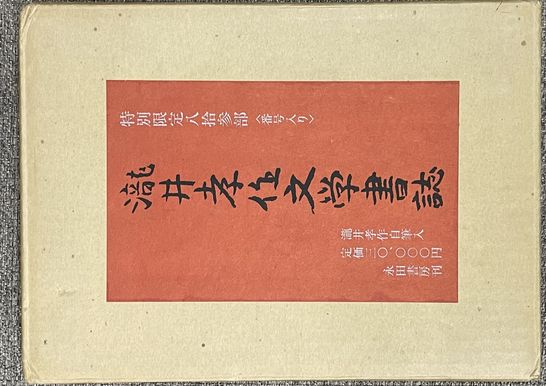 特別限定八拾参部〈番号入り〉
瀧井孝作文学書誌
瀧井孝作自筆入
定価三〇、〇〇〇円
永田書房刊